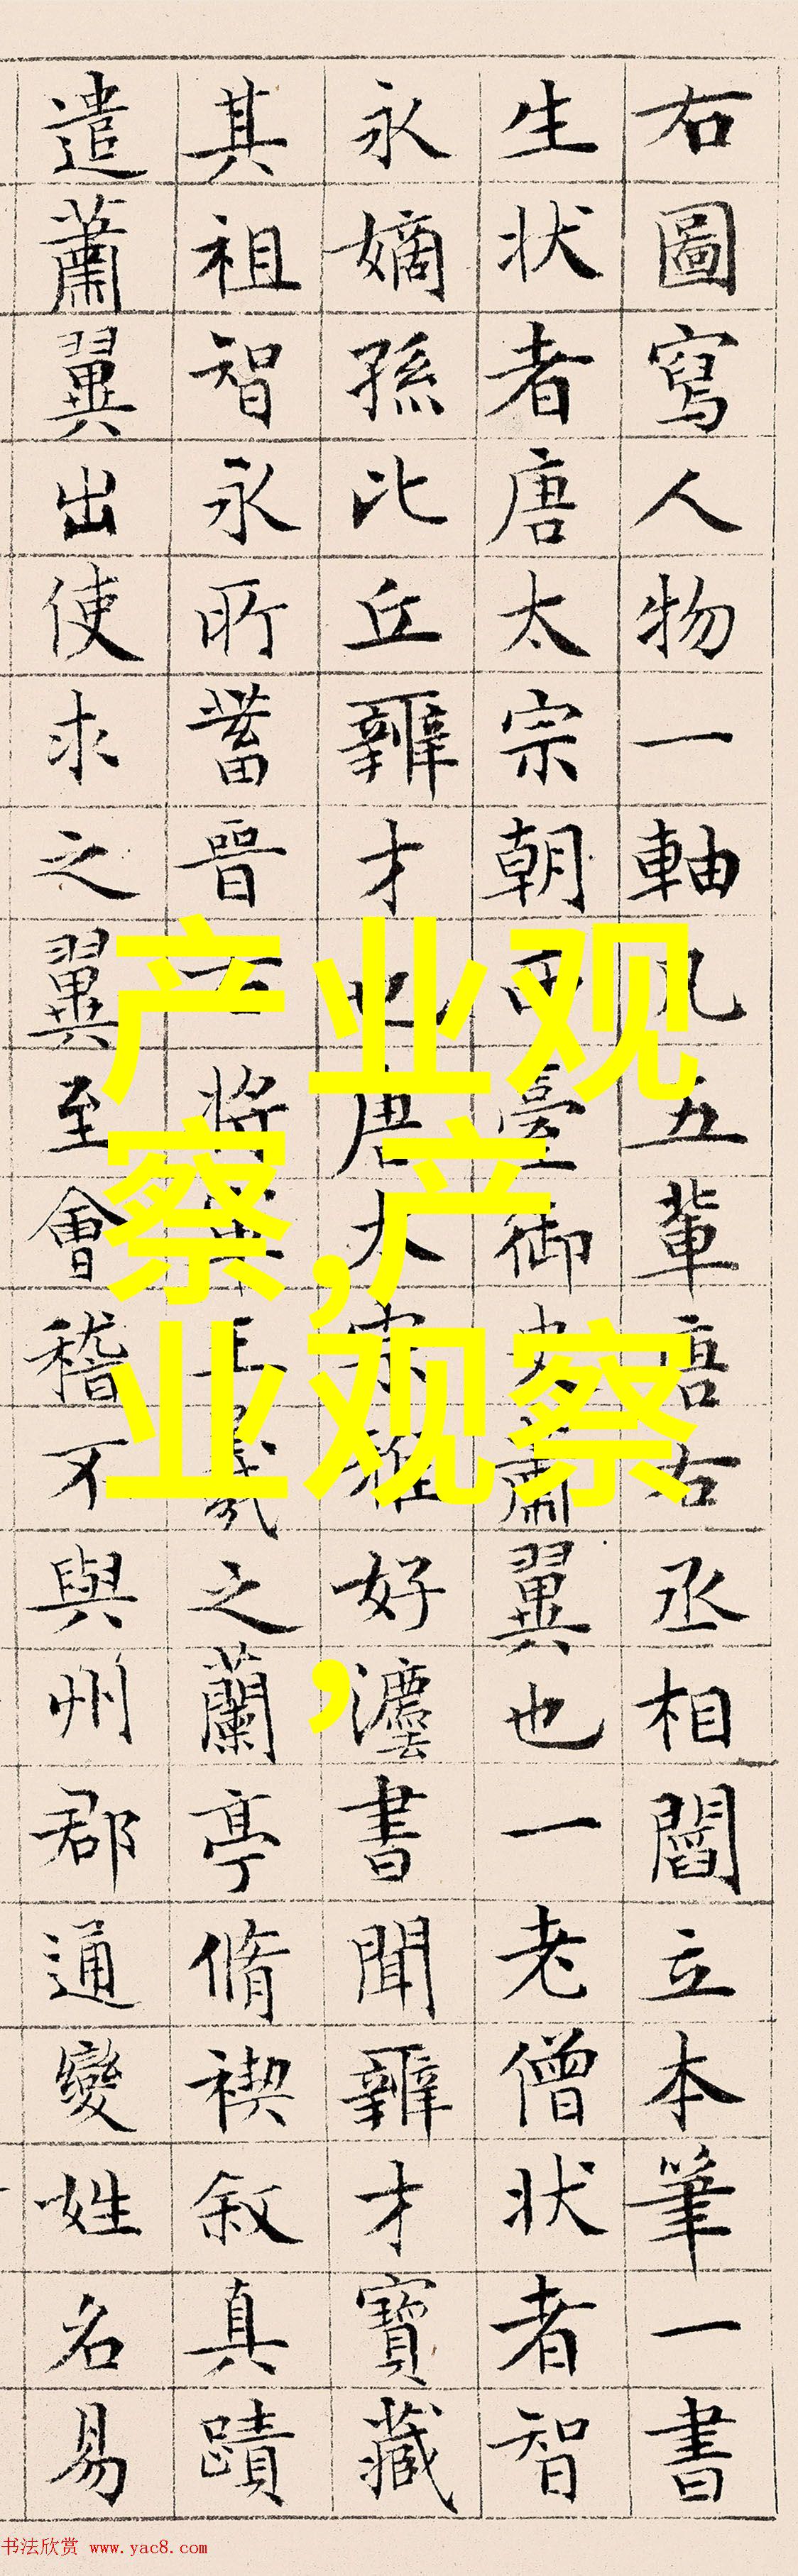 右圖寫人物一軸凡五輩唐右丞相閻立本筆一書
生状者唐太宗朝西臺御史蕭翼也一老僧状者智
永嫡孫比丘辨才也唐太宗雅好灋書聞辨才寶藏
其祖智永所蓄晉右將軍王羲之蘭亭脩禊叙真蹟
遣蕭翼出使求之翼至會稽不與州郡通變姓名易
产业观
察,产
业观察
,
书法欣赏 www.yac8.com